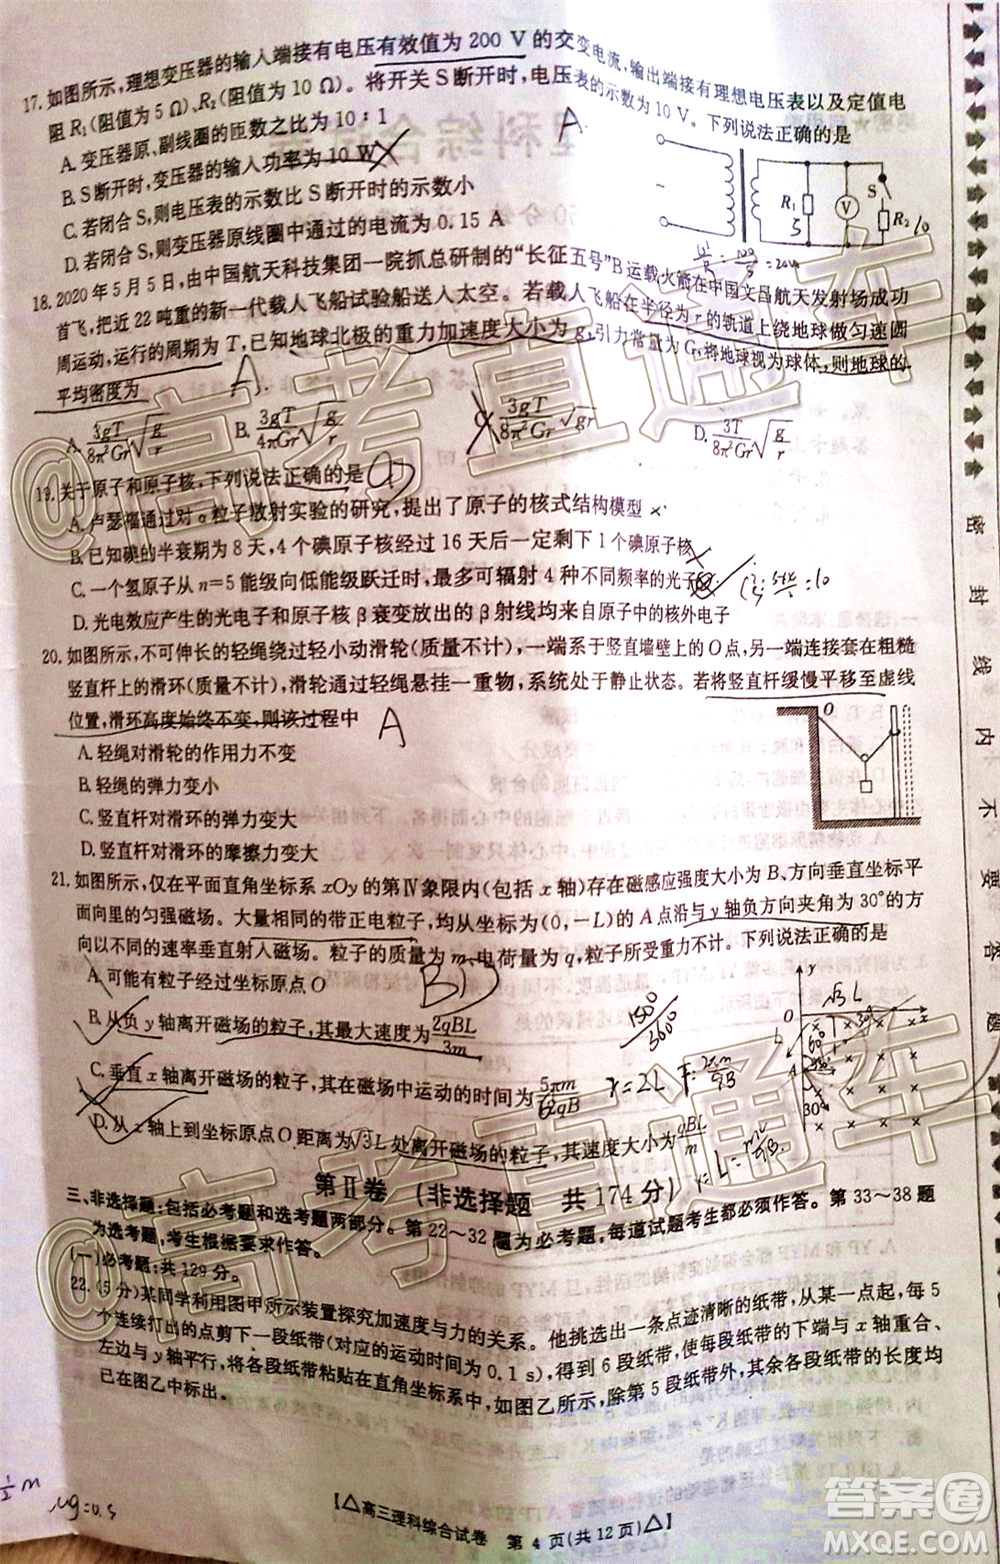 17. 如图所示,理想变压器的输入端接有电压有效值为 200 V 的交变电流,输出端接有理想电压表以及定值电
阻 R₁(阻值为 5 Ω)、R₂(阻值为 10 Ω)。将开关 S 断开时,电压表的示数为 10 V。下列说法正确的是
A. 变压器原、副线圈的匝数之比为 10∶1
A
B. S 断开时,变压器的输入功率为 10 W
C. 若闭合 S,则电压表的示数比 S 断开时的示数小
D. 若闭合 S,则变压器原线圈中通过的电流为 0.15 A
R₁
5
V
S
R₂
10
18. 2020 年 5 月 5 日,由中国航天科技集团一院抓总研制的“长征五号”B 运载火箭在中国文昌航天发射场成功
首飞,把近 22 吨重的新一代载人飞船试验船送入太空。若载人飞船在半径为 r 的轨道上绕地球做匀速圆
周运动,运行的周期为 T,已知地球北极的重力加速度大小为 g,引力常量为 G,将地球视为球体,则地球的
平均密度为
A.
A. 3gT/8π²Gr √(g/r)
B. 3gT/4πGr √(g/r)
C. 3gT/8π²Gr √gr
D. 3T/8π²Gr √(g/r)
19. 关于原子和原子核,下列说法正确的是
A. 卢瑟福通过对 α 粒子散射实验的研究,提出了原子的核式结构模型
B. 已知碘的半衰期为 8 天,4 个碘原子核经过 16 天后一定剩下 1 个碘原子核
C. 一个氢原子从 n=5 能级向低能级跃迁时,最多可辐射 4 种不同频率的光子
D. 光电效应产生的光电子和原子核 β 衰变放出的 β 射线均来自原子中的核外电子
20. 如图所示,不可伸长的轻绳绕过轻小动滑轮(质量不计),一端系于竖直墙壁上的 O 点,另一端连接套在粗糙
竖直杆上的滑环(质量不计),滑轮通过轻绳悬挂一重物,系统处于静止状态。若将竖直杆缓慢平移至虚线
位置,滑环高度始终不变,则该过程中
A
A. 轻绳对滑轮的作用力不变
B. 轻绳的弹力变小
C. 竖直杆对滑环的弹力变大
D. 竖直杆对滑环的摩擦力变大
O
21. 如图所示,仅在平面直角坐标系 xOy 的第Ⅳ象限内(包括 x 轴)存在磁感应强度大小为 B、方向垂直坐标平
面向里的匀强磁场。大量相同的带正电粒子,均从坐标为(0,−L)的 A 点沿与 y 轴负方向夹角为 30°的方
向以不同的速率垂直射入磁场。粒子的质量为 m、电荷量为 q,粒子所受重力不计。下列说法正确的是
A. 可能有粒子经过坐标原点 O
BD
B. 从负 y 轴离开磁场的粒子,其最大速度为 2qBL/3m
C. 垂直 x 轴离开磁场的粒子,其在磁场中运动的时间为 5πm/6qB
D. 从 x 轴上到坐标原点 O 距离为√3L 处离开磁场的粒子,其速度大小为 qBL/m
150°/360°
r=2L
y
O
x
A
30°
√3L
第Ⅱ卷 (非选择题 共 174 分)
三、非选择题:包括必考题和选考题两部分。第 22～32 题为必考题,每道试题考生都必须作答。第 33～38 题
为选考题,考生根据要求作答。
(一)必考题:共 129 分。
22. (5 分)某同学利用图甲所示装置探究加速度与力的关系。他挑选出一条点迹清晰的纸带,从某一点起,每 5
个连续打出的点剪下一段纸带(对应的运动时间为 0.1 s),得到 6 段纸带,然后将这些纸带的下端与 x 轴重合、
左边与 y 轴平行,将各段纸带粘贴在直角坐标系中,如图乙所示,除第 5 段纸带外,其余各段纸带的长度均
已在图乙中标出。
½m
μg=0.5
【△高三理科综合试卷 第 4 页(共 12 页)△】
密封线内不要答题
@高考直通车
@高考直通车
答案圈
MXQE.COM